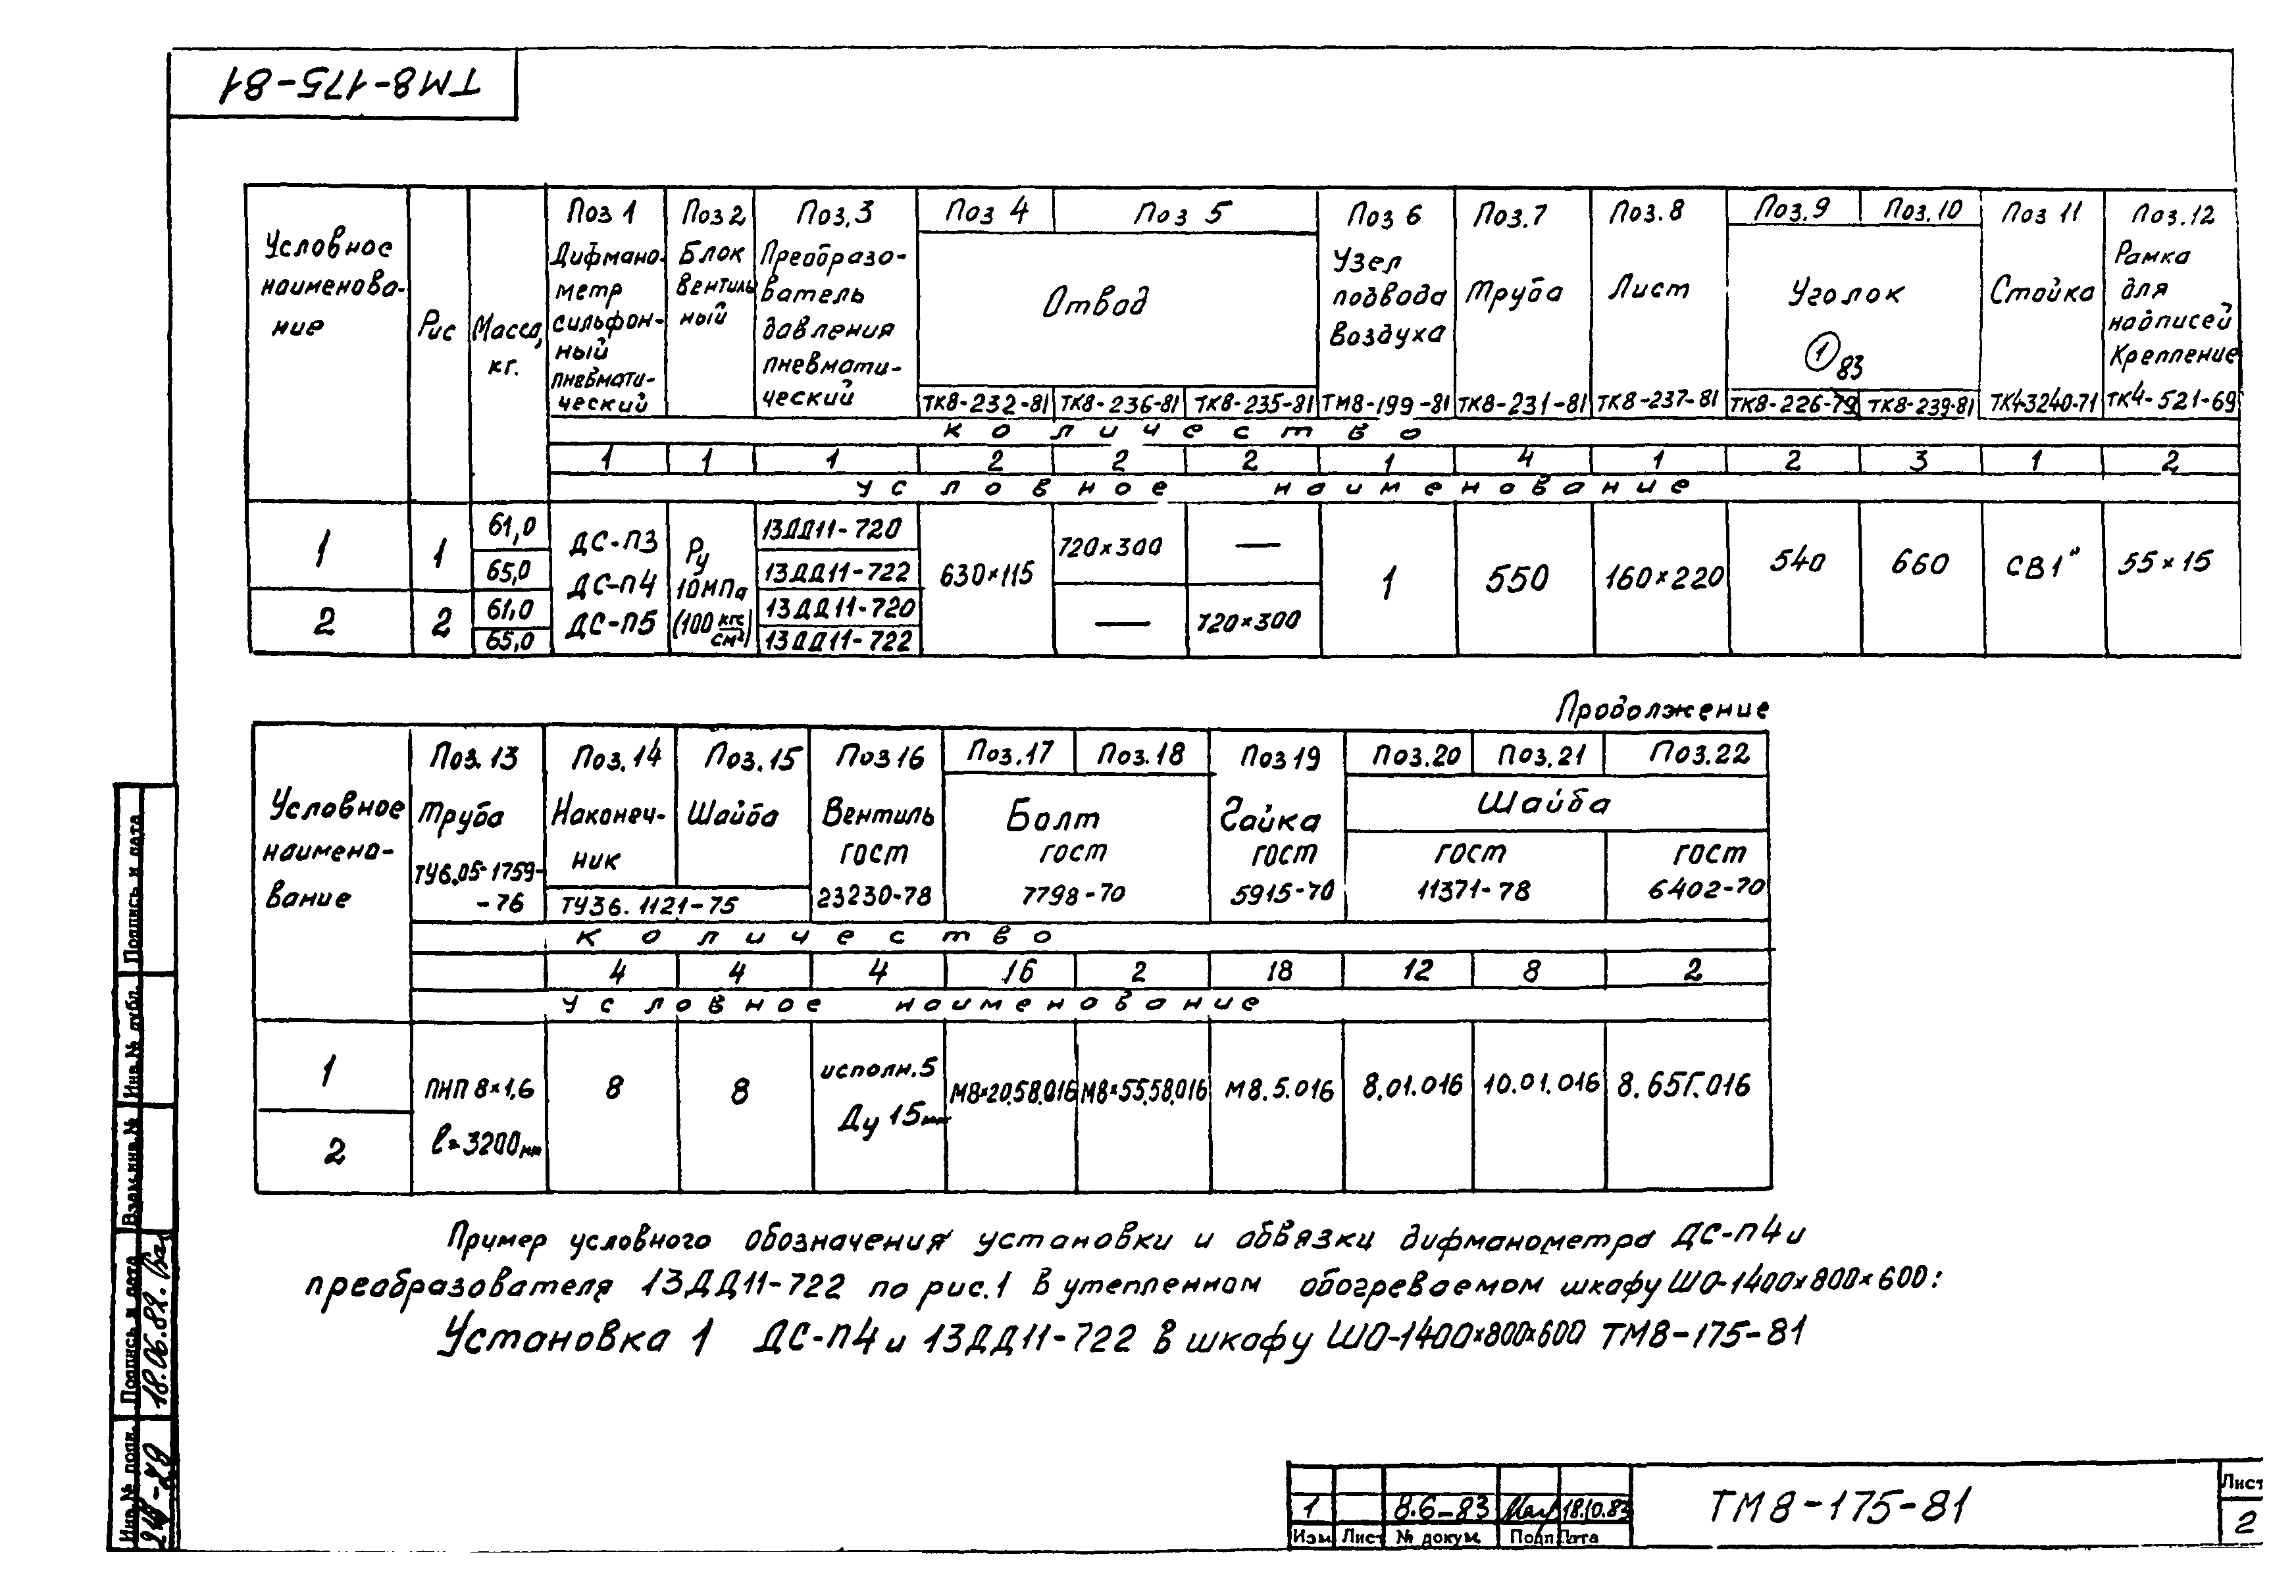 ТМ8-175-81
Условное наименова-ние
Рис
Масса, кг.
Поз 1
Дифмано-
метр
сильфон-
ный
пневмати-
ческий
Поз 2
Блок
вентиль
ный
Поз.3
Преобразо-
ватель
давления
пневмати-
ческий
Поз 4
Поз 5
Отвод
ТК8-232-81
ТК8-236-81
ТК8-235-81
Поз 6
Узел
подвода
воздуха
ТМ8-199-81
Поз.7
Труба
ТК8-231-81
Поз.8
Лист
ТК8-237-81
Поз.9
Поз.10
Уголок
1 83
ТК8-226-79
ТК8-239-81
Поз 11
Стойка
ТК4-3240-71
Поз.12
Рамка
для
надписей
Крепление
ТК4-521-69
количество
1 1 1 2 2 2 1 4 1 2 3 1 2
условное наименование
1
1
61,0
65,0
2
2
61,0
65,0
ДС-П3
ДС-П4
ДС-П5
Ру
10МПа
(100 кгс/см²)
13ДД11-720
13ДД11-722
13ДД11-720
13ДД11-722
630×115
720×300
—
—
720×300
1
550
160×220
540
660
СВ1"
55×15
Продолжение
Условное
наимено-
вание
Поз.13
Труба
ТУ6.05-1759-
-76
Поз.14
Наконеч-
ник
Поз.15
Шайба
ТУ36.1121-75
Поз 16
Вентиль
ГОСТ
23230-78
Поз.17
Поз.18
Болт
ГОСТ
7798-70
Поз 19
Гайка
ГОСТ
5915-70
Поз.20
Поз.21
Поз.22
Шайба
ГОСТ
11371-78
ГОСТ
6402-70
количество
4 4 4 16 2 18 12 8 2
условное наименование
1
2
ПНП 8×1,6
l=3200мм
8
8
исполн.5
Ду 15мм
М8×20.58.016
М8×55.58.016
М8.5.016
8.01.016
10.01.016
8.65Г.016
Пример условного обозначения установки и обвязки дифманометра ДС-П4 и
преобразователя 13ДД11-722 по рис.1 в утепленном обогреваемом шкафу ШО-1400×800×600:
Установка 1 ДС-П4 и 13ДД11-722 в шкафу ШО-1400×800×600 ТМ8-175-81
Подпись и дата
Инв.№ дубл.
Взам.инв.№
Подпись и дата
18.06.82.
Инв.№ подл.
1 8.6-83 18.10.83
Изм Лист № докум. Подп Дата
ТМ8-175-81
Лист
2